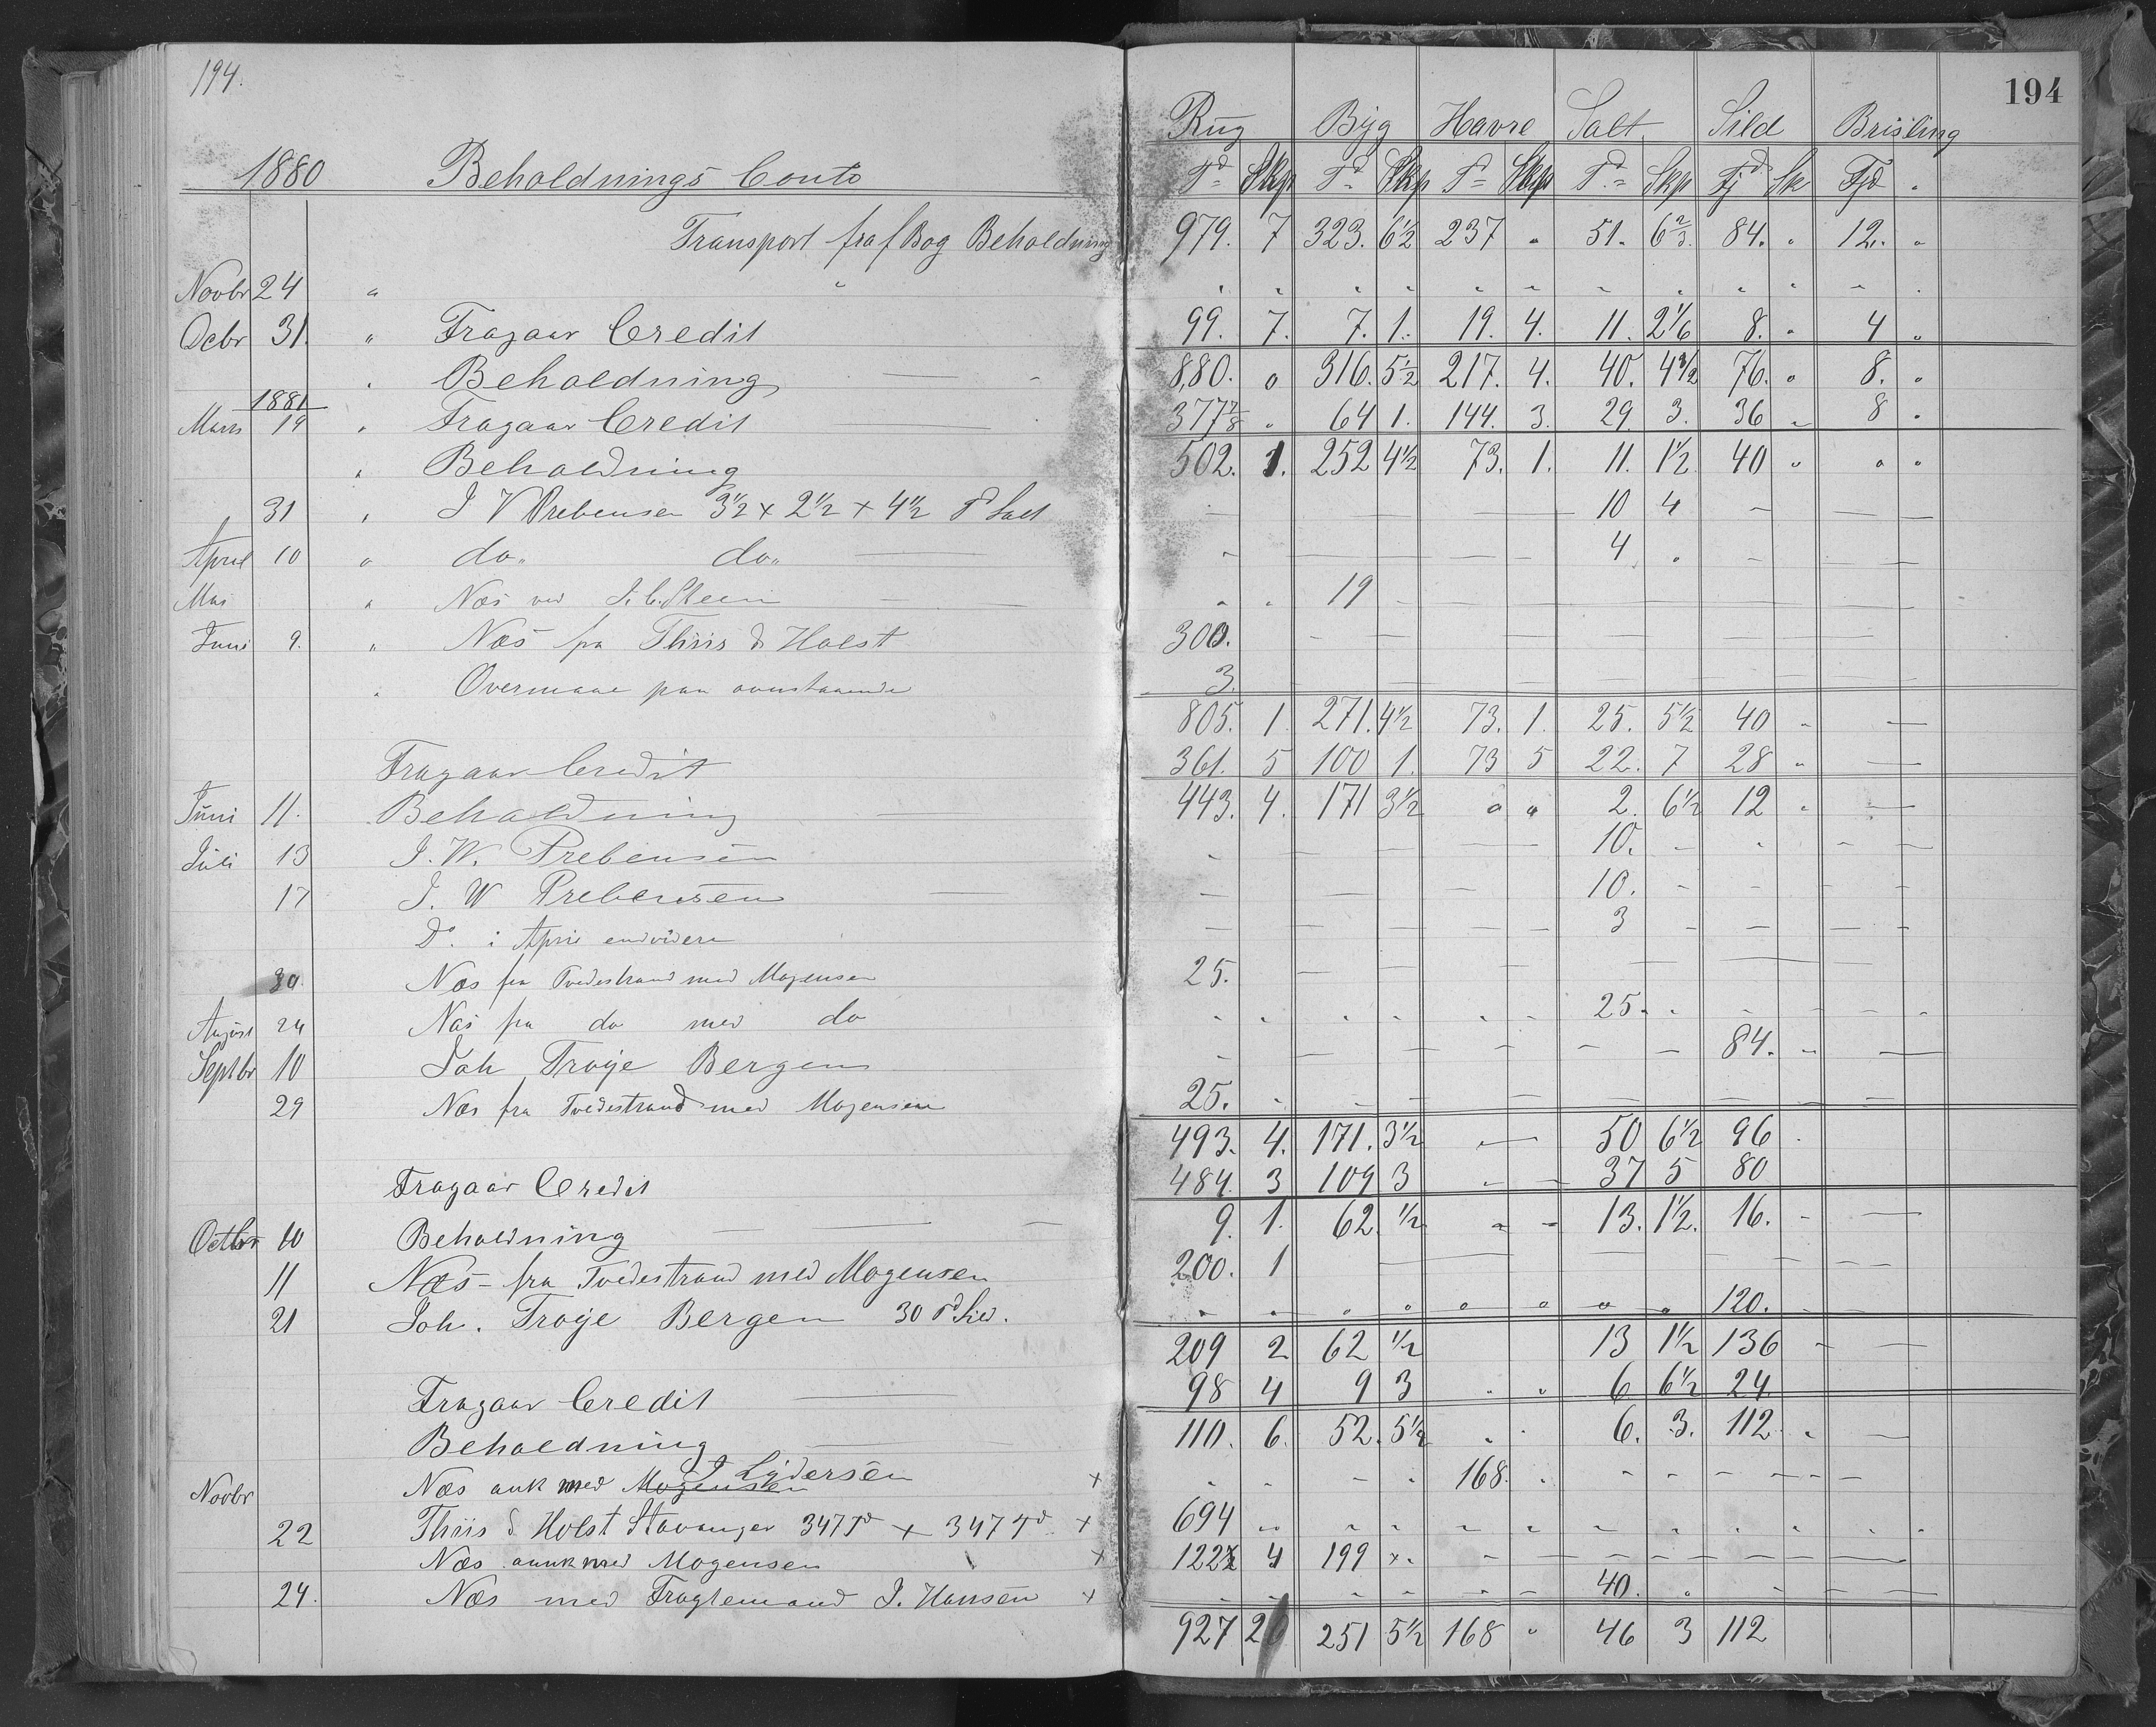 194.
194
Rug Byg Havre Salt Sild Brisling
1880 Beholdnings Conto Td Skp Td Skp Td Skp Td Skp Fjd Sk Fjd "
Transport fra f Bog Beholdning 979. 7 323. 6 1/2 237 " 51. 6 2/3. 84. " 12. "
Novbr 24 " "
Dcbr 31. " Fragaar Credit 99. 7. 7. 1. 19. 4. 11. 2 1/6 8. " 4 "
" Beholdning 880. 0 316. 5 1/2 217. 4. 40. 4 1/2 76. " 8. "
1881
Marts 19 " Fragaar Credit 377 7/8 " 64 1. 144. 3. 29. 3. 36 " 8 "
" Beholdning 502. 1. 252 4 1/2 73. 1. 11. 1 1/2 40 " " "
31 " J V Prebensen 3 1/2 + 2 1/2 + 4 1/2 Td Salt 10 4
April 10 " do " do " 4 "
Mai " Næs ved 19
Juni 9. " Næs fra Thiis & Holst 300.
" Overmaae paa ovenstaaende 3.
805. 1 271. 4 1/2 73. 1. 25. 5 1/2 40 "
Fragaar Credit 361. 5 100 1. 73 5 22. 7 28 "
Juni 11. Beholdning 443. 4. 171 3 1/2 " " 2. 6 1/2 12 "
Juli 13 J. W. Prebensen 10.
17 J. W Prebensen 10.
Do. i April endvidere 3
30. Næs fra Tvedestrand med Mogensen 25.
August 24 Næs fra do med do 25.
Septbr 10 Joh Troye Bergen 84.
29 Næs fra Tvedestrand med Mogensen 25.
493. 4. 171. 3 1/2 — 50 6 1/2 96
Fragaar Credit 484. 3 109 3 37 5 80
Octbr 10 Beholdning 9. 1. 62. 1/2 " — 13. 1 1/2. 16.
11 Næs fra Tvedestrand med Mogensen 200. 1
21 Joh. Troye Bergen 30 Td Sild. 120.
209 2 62 1/2 13 1 1/2 136
Fragaar Credit 98 4 9 3 " " 6 6 1/2 24
Beholdning 110. 6. 52. 5 1/2 " " 6. 3. 112 "
Novbr Næs ank med Mogensen J Lydersen × 168.
22 Thiis & Holst Stavanger 347 Td + 347 Td × 694 "
Næs ank med Mogensen × 122 4 199
24. Næs med Fragtemand J. Hansen × 40. "
927 2 251 5 1/2 168 " 46 3 112